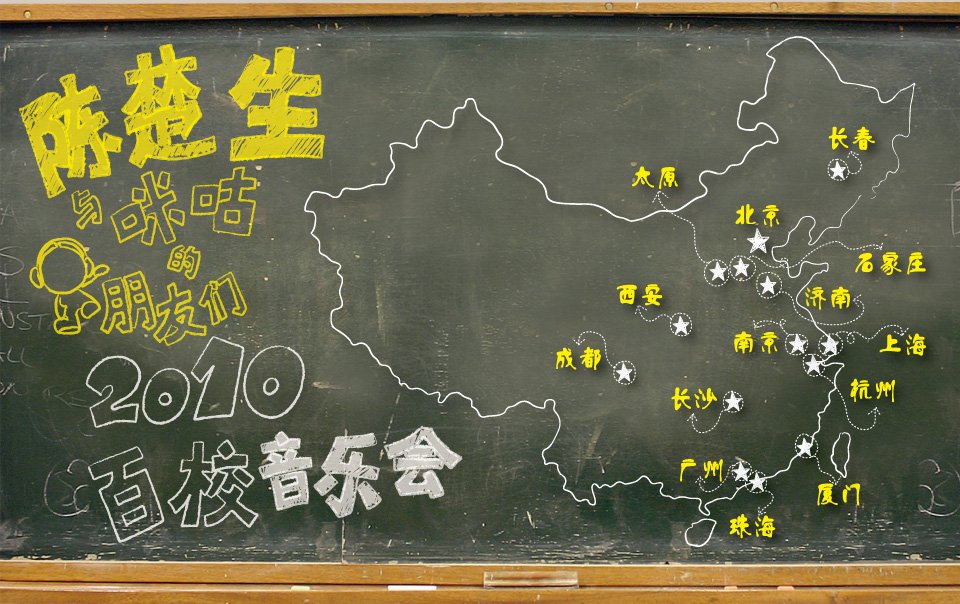 陈楚生
与咪咕
的
朋友们
2010
百校音乐会
长春
太原
北京
石家庄
西安
济南
南京
上海
成都
杭州
长沙
广州
厦门
珠海